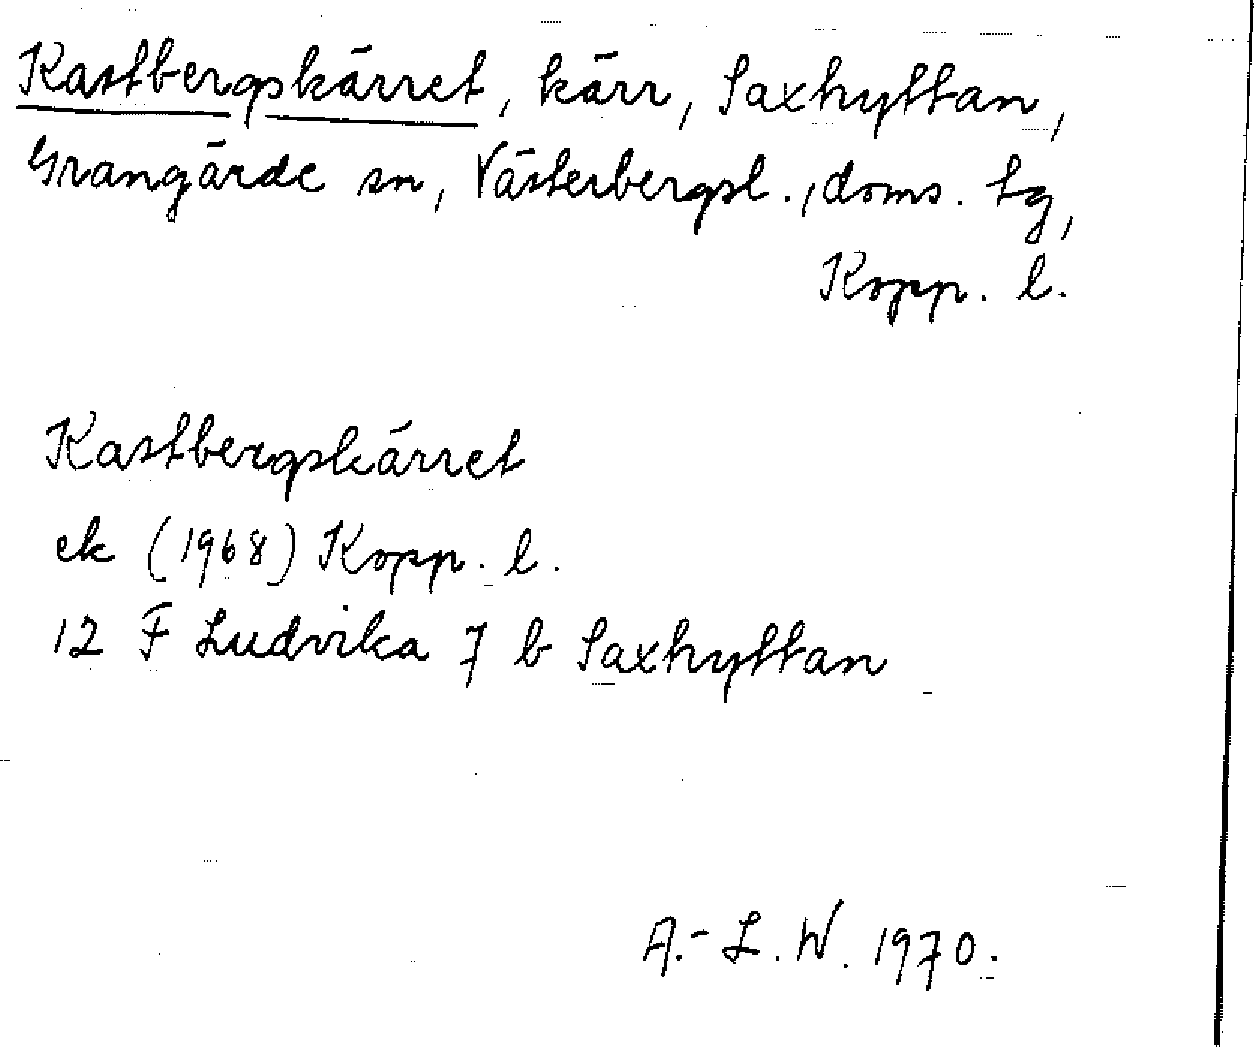 Kastbergskärret, kärr, Saxhyttan,
Grangärde sn, Västerbergsl., doms. tg,
Kopp. l.
Kastbergskärret
ek (1968) Kopp. l.
12 F Ludvika 7 b Saxhyttan
A.-L. W. 1970.